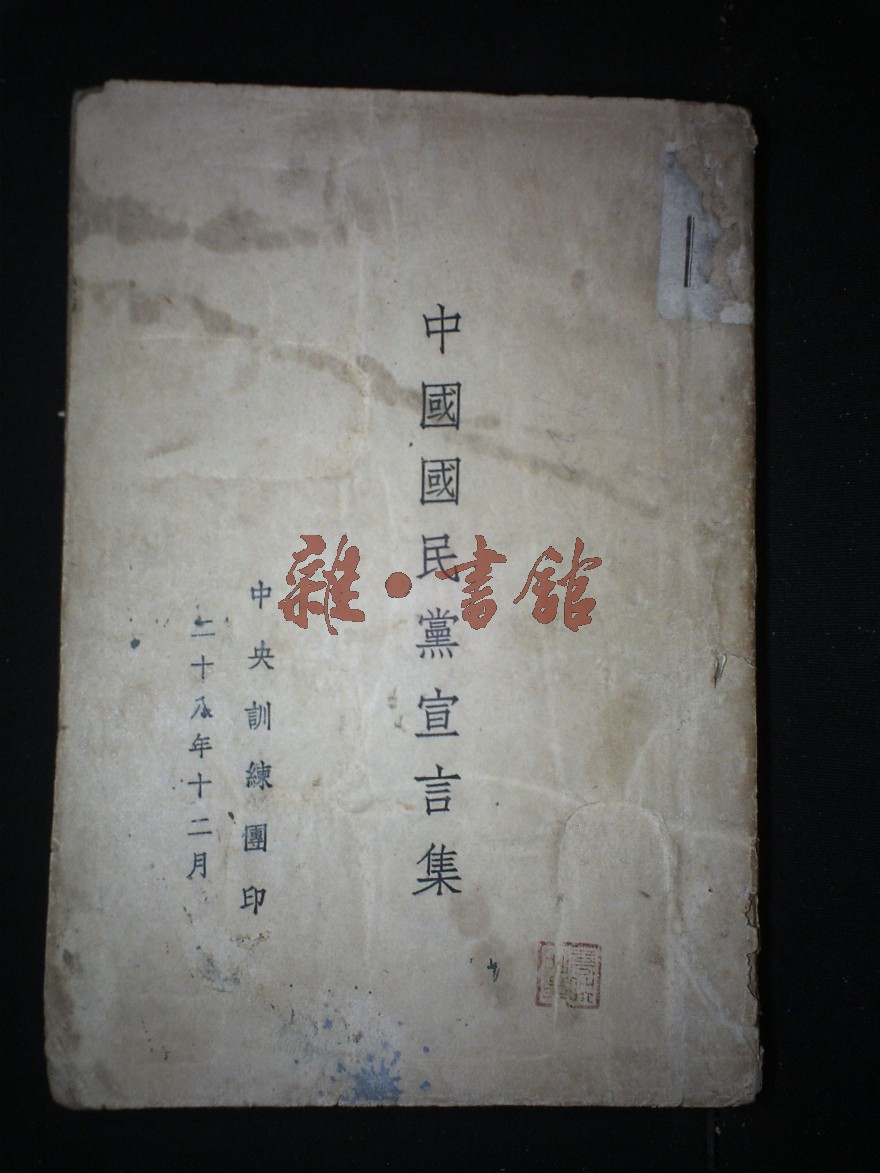 中國國民黨宣言集
中央訓練團印
二十八年十二月
雜·書館